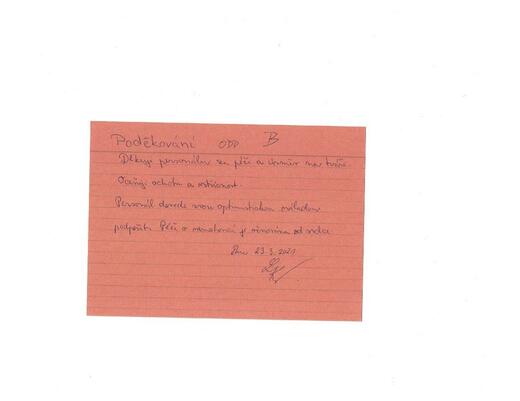 Poděkování ODD B
Děkuji personálu za péči a úsměv na tváři.
Oceňuji ochotu a vstřícnost.
Personál dovede svou optimistickou náladou
podpořit. Péče o nemohoucí je věnována od srdce
Dne 23.3.2021